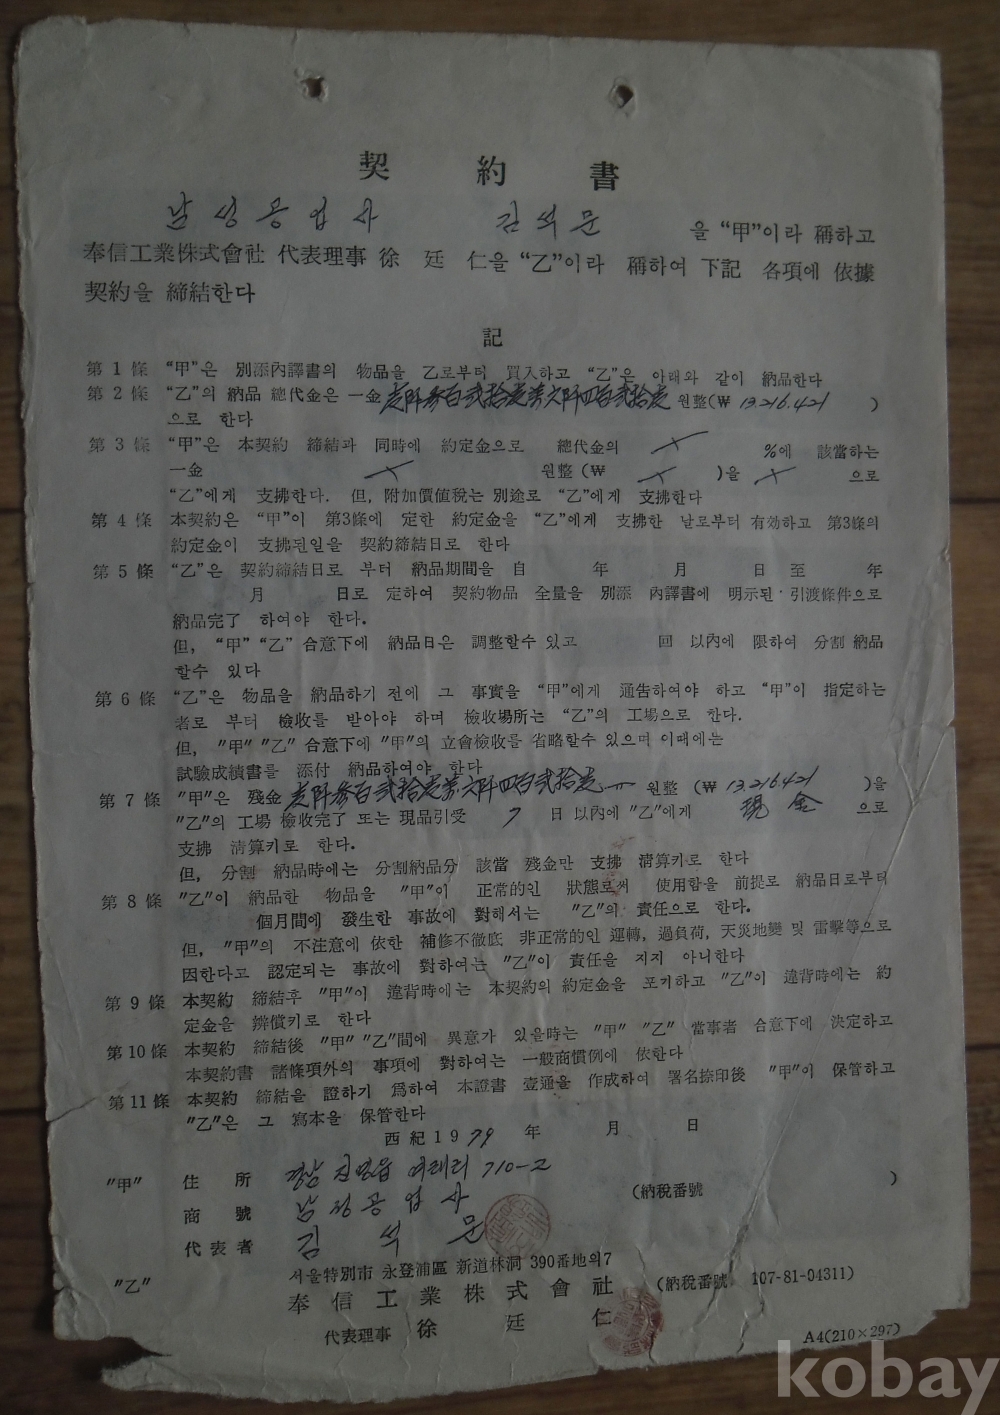 契 約 書
남성공업사 김석문 을 “甲”이라 稱하고
奉信工業株式會社 代表理事 徐 廷 仁을 “乙”이라 稱하여 下記 各項에 依據
契約을 締結한다
記
第 1 條 “甲”은 別添內譯書의 物品을 乙로부터 買入하고 “乙”은 아래와 같이 納品한다
第 2 條 “乙”의 納品 總代金은 一金 壱阡参百弐拾壱萬六阡四百弐拾壱 원整(₩ 13,216,421 )
으로 한다
第 3 條 “甲”은 本契約 締結과 同時에 約定金으로 總代金의 %에 該當하는
一金 원整 (₩ )을 으로
“乙”에게 支拂한다. 但, 附加價値稅는 別途로 “乙”에게 支拂한다
第 4 條 本契約은 “甲”이 第3條에 定한 約定金을 “乙”에게 支拂한 날로부터 有効하고 第3條의
約定金이 支拂된일을 契約締結日로 한다
第 5 條 “乙”은 契約締結日로 부터 納品期間을 自 年 月 日 至 年
月 日로 定하여 契約物品 全量을 別添 內譯書에 明示된 引渡條件으로
納品完了 하여야 한다.
但, “甲” “乙” 合意下에 納品日은 調整할수 있고 回 以內에 限하여 分割 納品
할수 있다
第 6 條 “乙”은 物品을 納品하기 전에 그 事實을 “甲”에게 通告하여야 하고 “甲”이 指定하는
者로 부터 檢收를 받아야 하며 檢收場所는 “乙”의 工場으로 한다.
但, "甲" "乙" 合意下에 "甲"의 立會檢收를 省略할수 있으며 이때에는
試驗成績書를 添付 納品하여야 한다
第 7 條 "甲"은 殘金 壱阡参百弐拾壱萬六阡四百弐拾壱 원整 (₩ 13,216,421 )을
"乙"의 工場 檢收完了 또는 現品引受 7 日 以內에 "乙"에게 現金 으로
支拂 淸算키로 한다.
但, 分割 納品時에는 分割納品分 該當 殘金만 支拂 淸算키로 한다
第 8 條 "乙"이 納品한 物品을 "甲"이 正常的인 狀態로써 使用함을 前提로 納品日로부터
個月間에 發生한 事故에 對해서는 "乙"의 責任으로 한다.
但, "甲"의 不注意에 依한 補修不徹底 非正常的인 運轉, 過負荷, 天災地變 및 雷擊等으로
因한다고 認定되는 事故에 對하여는 "乙"이 責任을 지지 아니한다
第 9 條 本契約 締結후 "甲"이 違背時에는 本契約의 約定金을 포기하고 "乙"이 違背時에는 約
定金을 辨償키로 한다
第10條 本契約 締結後 "甲" "乙"間에 異意가 있을時는 "甲" "乙" 當事者 合意下에 決定하고
本契約書 諸條項外의 事項에 對하여는 一般商慣例에 依한다
第11條 本契約 締結을 證하기 爲하여 本證書 壹通을 作成하여 署名捺印後 "甲"이 保管하고
"乙"은 그 寫本을 保管한다
西紀 1979 年 月 日
"甲" 住 所 경남 진영읍 여래리 710-2
(納稅番號 )
商 號 남성공업사
代表者 김 석 문
"乙" 서울特別市 永登浦區 新道林洞 390番地의7
奉信工業株式會社 (納稅番號 107-81-04311)
代表理事 徐 廷 仁
A4(210×297)
kobay